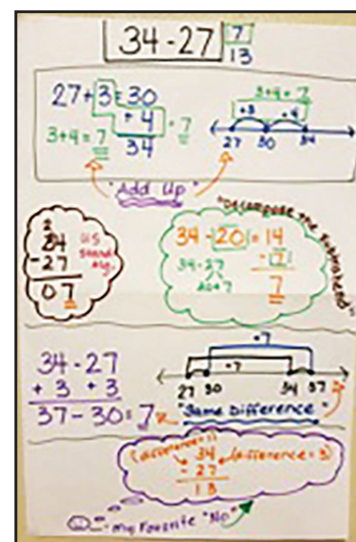 34 - 27
7
13
27 + 3 = 30
+ 4
34
3+4 = 7
7
3+4 = 7
+3 +4
27 30 34
"Add Up"
2
34
- 27
07
US
Stand.
Alg.
"Decompose the Subtrahend"
34 - 20 = 14
- 7
7
34 - 27
20+7
34 - 27
+ 3 + 3
37 - 30 = 7
+7
+7
27 30 34 37
"Same Difference"
34
- 27
13
(difference = 3)
my Favorite "No"